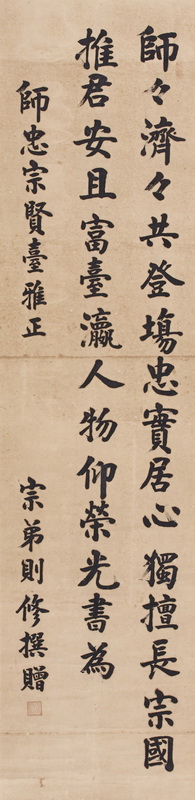 師々濟々共登塲忠實居心獨擅長宗國
推君安且富臺瀛人物仰榮光書為
師忠宗賢臺雅正
宗弟則修撰贈